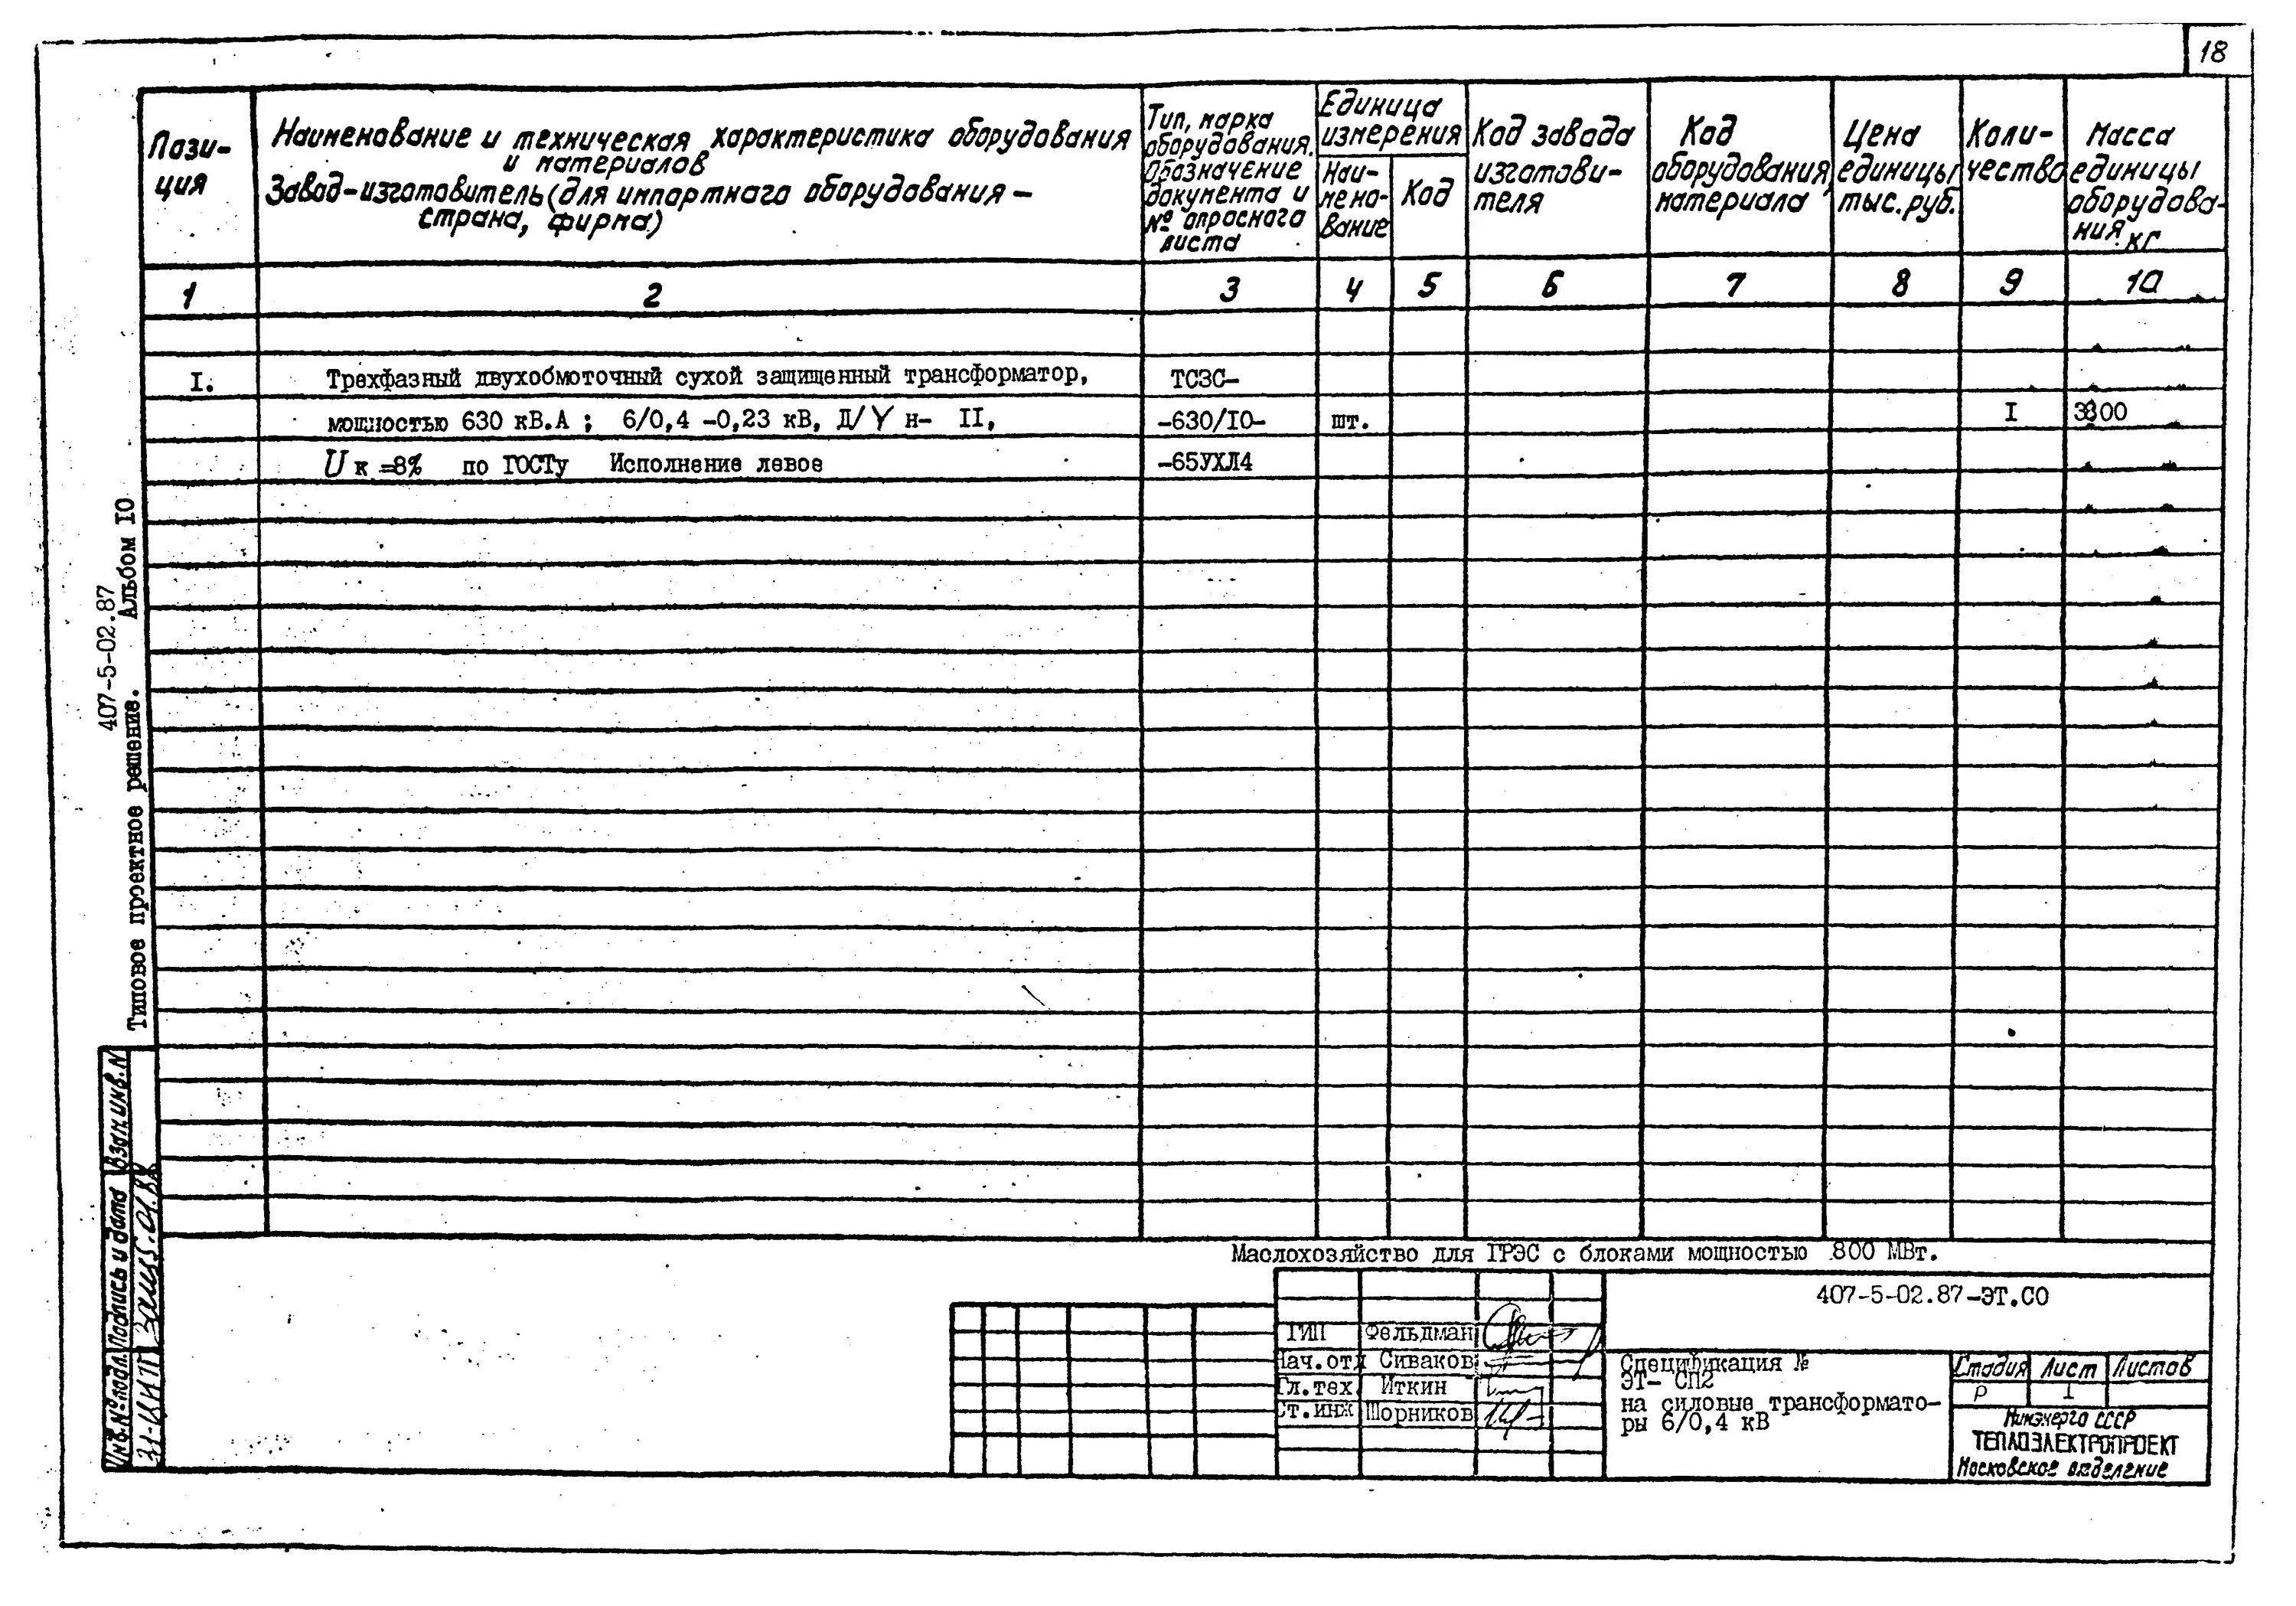 18
Пози-
ция
Наименование и техническая характеристика оборудования
и материалов
Завод-изготовитель (для импортного оборудования –
страна, фирма)
Тип, марка
оборудования.
Обозначение
документа и
№ опросного
листа
Единица
измерения
Наи-
мено-
вание
Код
Код завода
изготови-
теля
Код
оборудования,
материала
Цена
единицы
тыс. руб.
Коли-
чество
Масса
единицы
оборудова-
ния, кг
1 2 3 4 5 6 7 8 9 10
I. Трехфазный двухобмоточный сухой защищенный трансформатор, ТСЗС-
мощностью 630 кВ.А ; 6/0,4 -0,23 кВ, Д/Y н- II, -630/I0- шт. I
U к =8% по ГОСТу Исполнение левое -65УХЛ4
407-5-02.87
Типовое проектное решение. Альбом I0
Взам. инв. N
Подпись и дата
Инв. № подл.
Маслохозяйство для ГРЭС с блоками мощностью 800 МВт.
407-5-02.87-ЭТ.СО
ГИП Фельдман
Нач.отд Сиваков
Гл.тех. Иткин
Ст.инж Шорников
Спецификация №
ЭТ- СП2
на силовые трансформато-
ры 6/0,4 кВ
Стадия Лист Листов
Р I
Минэнерго СССР
ТЕПЛОЭЛЕКТРОПРОЕКТ
Московское отделение